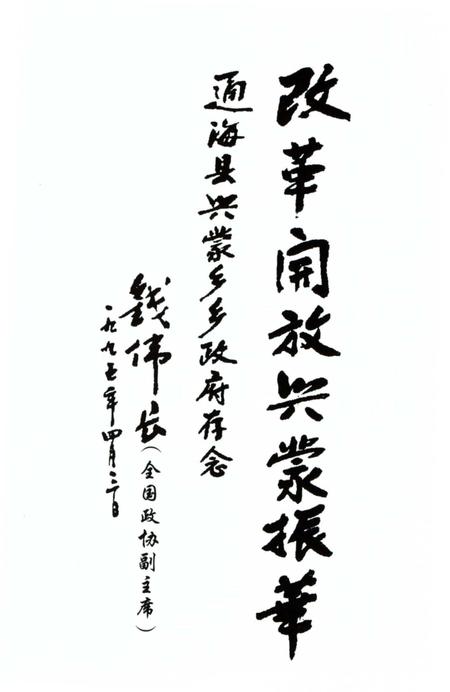 改革開放兴蒙振華
通海县兴蒙乡乡政府存念
钱伟长(全国政协副主席)
一九九五年四月二日